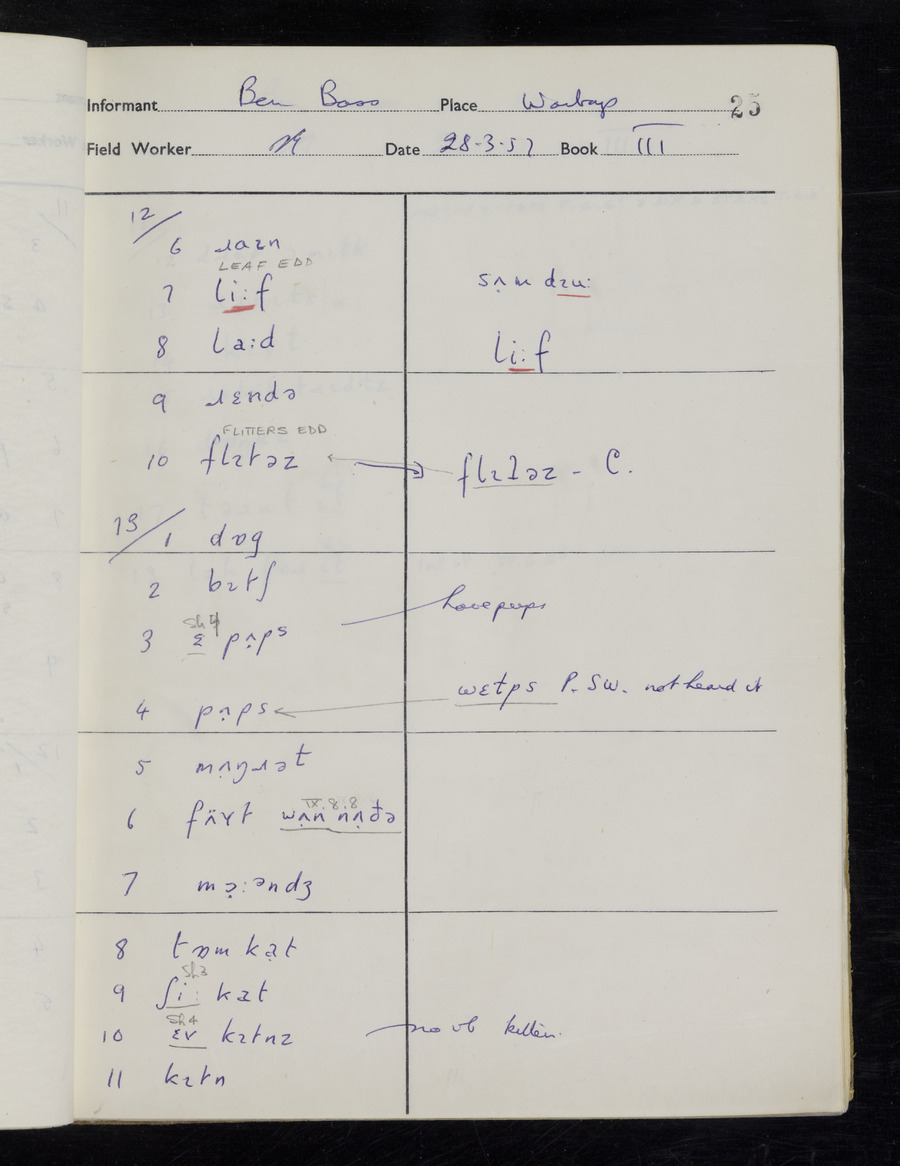 Informant Ben Bass Place Warboys 25
Field Worker Date 28-3-57 Book III
12/
6 ɹaɪn
LEAF EDD
7 li:f sʌ̣m dɪu:
8 la:d li:f
9 ɹɛndə
FLITTERS EDD
10 flɪtəz flɪʔəz - C.
13/ 1 dɒg
2 bɪtʃ
Sh4
3 ɛ pʌ̣ps have pups
4 pʌ̣ps wɛtps P. SW. not heard it
5 mʌŋɹət
IX.8.8
6 fʌ̈ɪt wʌ̣n ʌnʌ̣ðə
7 mə̣:əndʒ
8 tɒm kạt
Sh3
9 ʃi: kat
Sh4
10 ɛv kɪtnz no vb kitten.
11 kɪtn